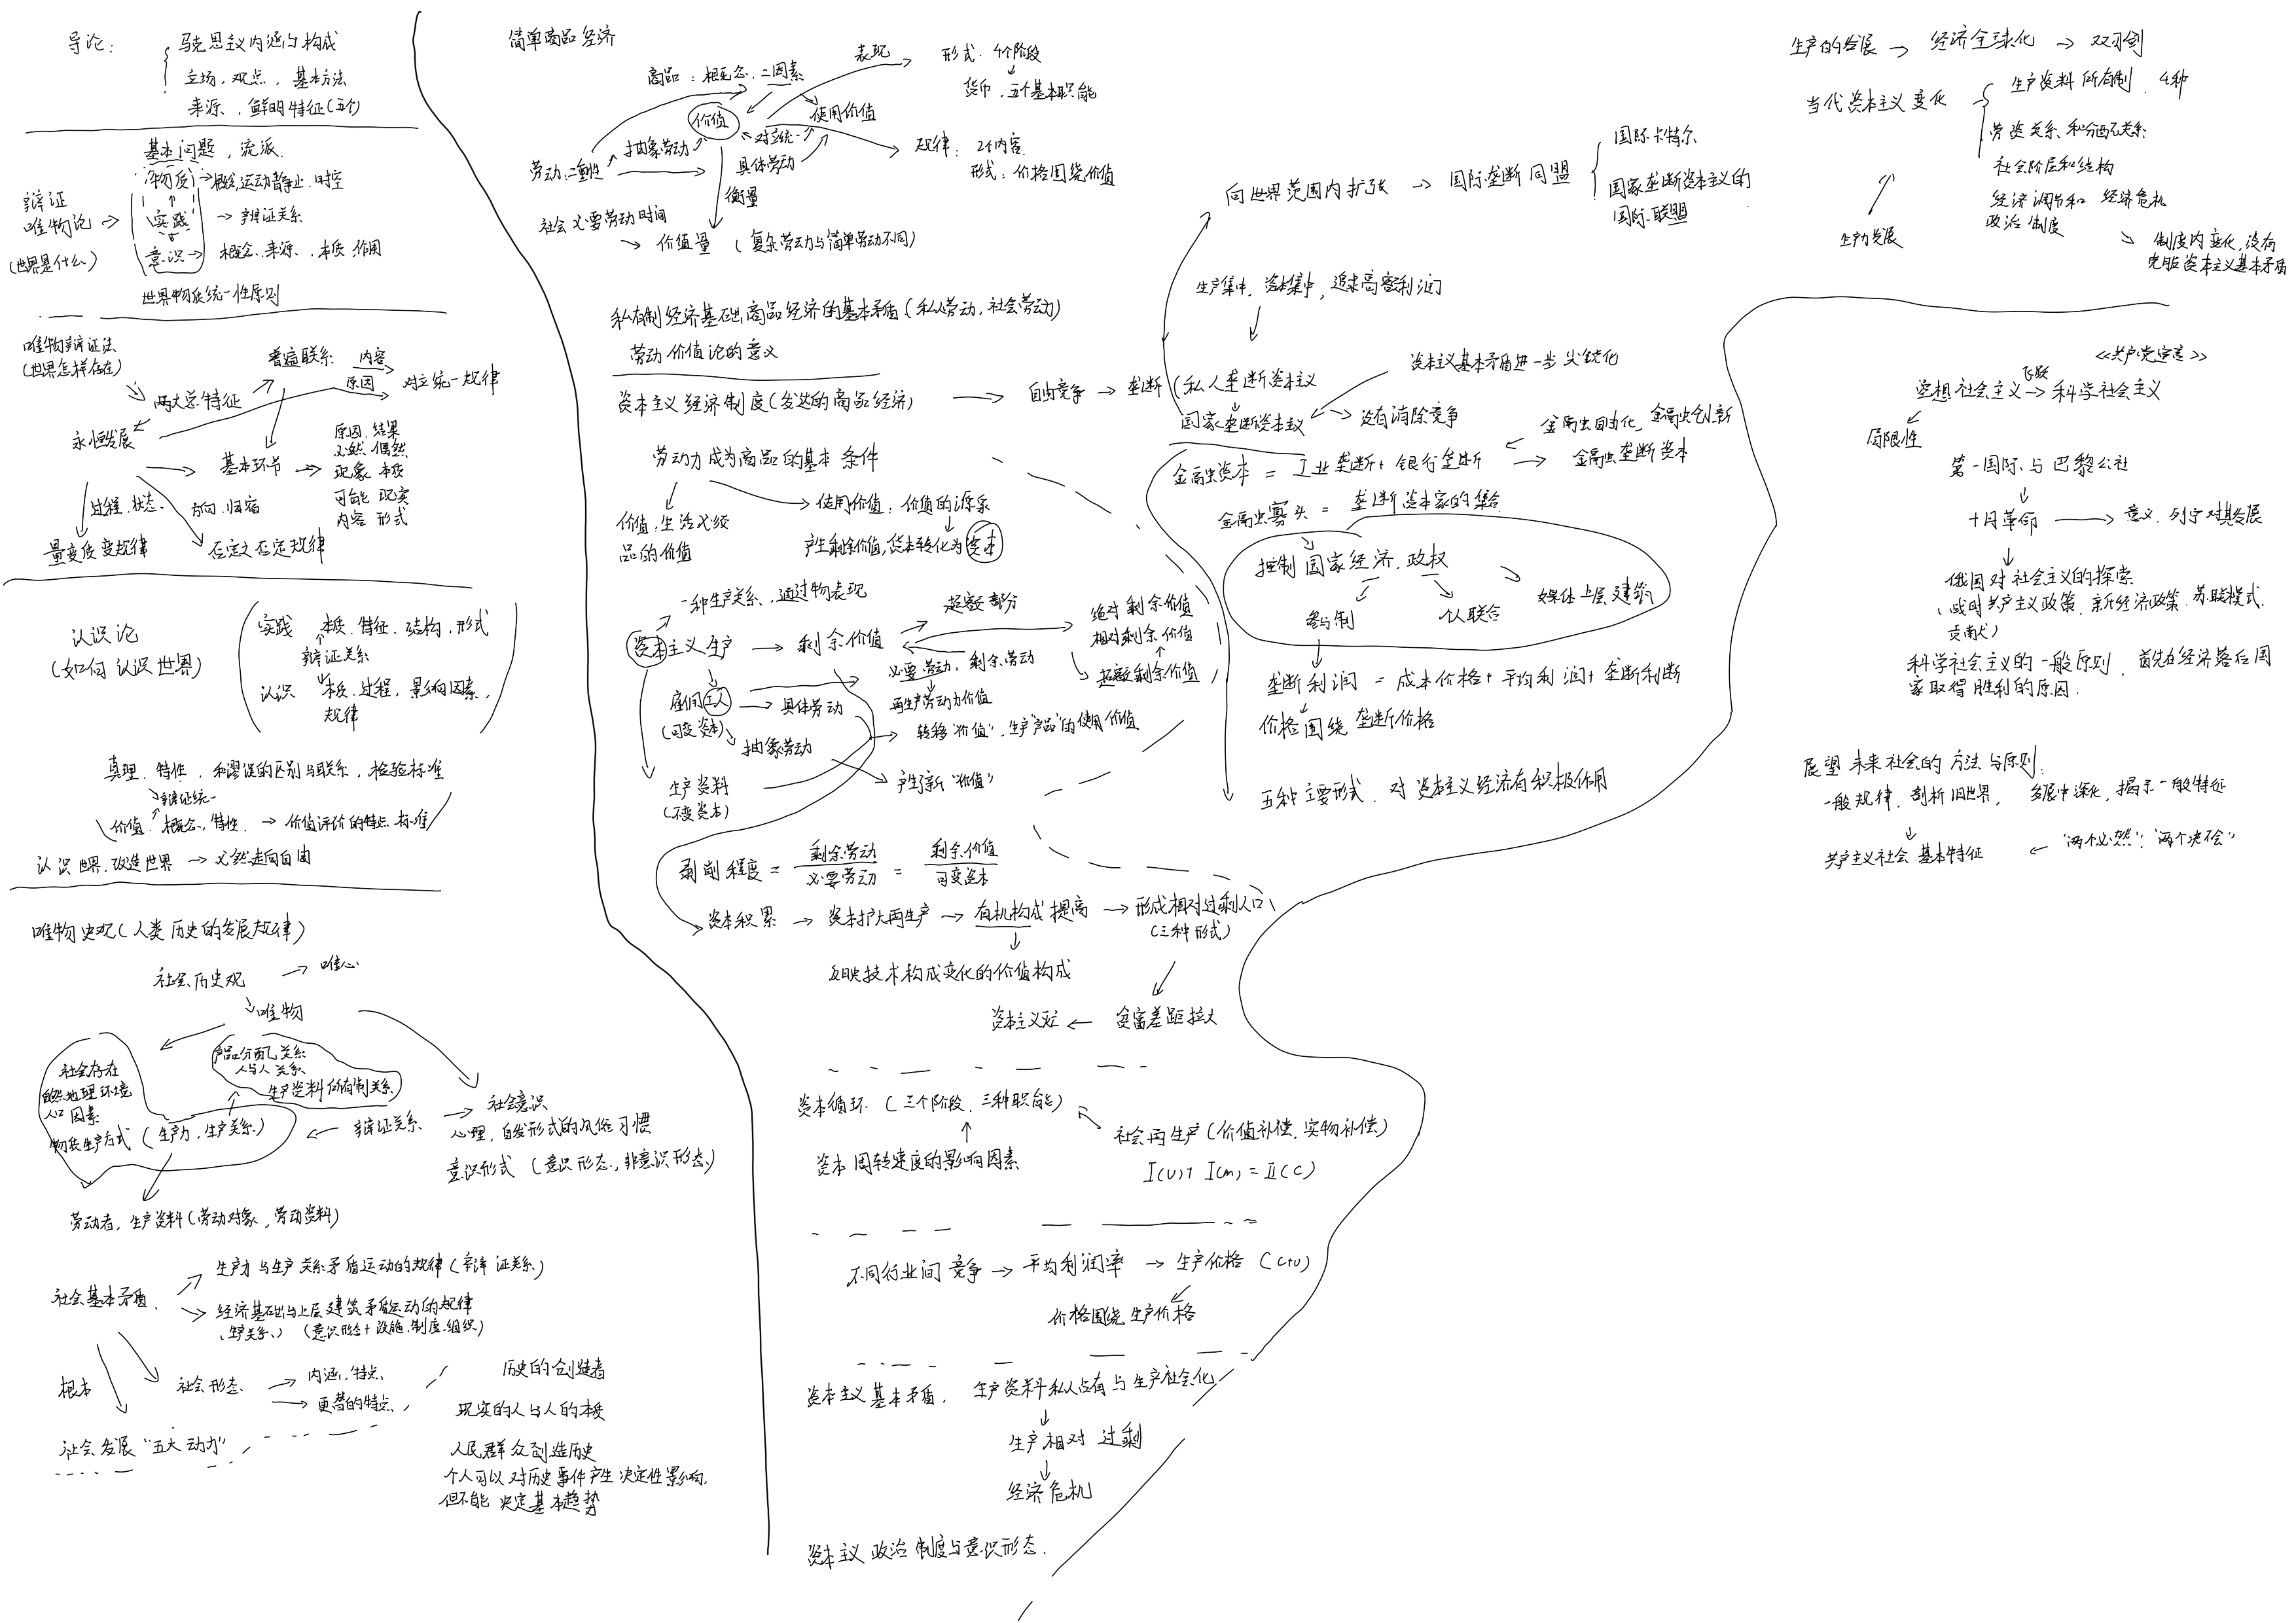 导论:
马克思主义内涵与构成
立场、观点、基本方法
来源、鲜明特征(五个)
基本问题,流派.
辩证
唯物论
(世界是什么)
物质→概念,运动静止、时空
实践 → 辩证关系
意识→ 概念、来源、本质、作用
世界物质统一性原则
唯物辩证法
(世界怎样存在)
两大总特征
普遍联系 内容
原因 对立统一规律
永恒发展
基本环节
原因 结果
必然 偶然
现象 本质
可能 现实
内容 形式
过程、状态、
方向、归宿
量变质变规律
否定之否定规律
认识论
(如何认识世界)
实践 本质、特征、结构、形式
辩证关系
认识 本质、过程、影响因素、
规律
真理、特性、和谬误的区别与联系、检验标准
辩证统一
价值: 概念,特性、→ 价值评价的特点、标准
认识世界、改造世界 → 必然走向自由
唯物史观(人类历史的发展规律)
社会历史观 → 唯心
唯物
社会存在
自然地理环境
人口因素
物质生产方式 (生产力,生产关系)
产品分配关系
人与人关系
生产资料所有制关系
辩证关系
社会意识
心理,自发形式的风俗习惯
意识形式 (意识形态,非意识形态)
劳动者,生产资料(劳动对象,劳动资料)
社会基本矛盾
生产力与生产关系矛盾运动的规律(辩证关系)
经济基础与上层建筑矛盾运动的规律
(生产关系) (意识形态+设施、制度、组织)
根本
社会形态 → 内涵、特点、
→ 更替的特点
社会发展“五大动力”
历史的创造者
现实的人与人的本质
人民群众创造历史
个人可以对历史事件产生决定性影响,
但不能决定基本趋势
简单商品经济
商品:概念、二因素
表现
形式: 4个阶段
货币、五个基本职能
价值
使用价值
对立统一
劳动二重性
抽象劳动
具体劳动
规律: 2个内容
形式:价格围绕价值
衡量
社会必要劳动时间
→ 价值量 (复杂劳动与简单劳动不同)
私有制经济基础商品经济的基本矛盾(私人劳动,社会劳动)
劳动价值论的意义
资本主义经济制度(发达的商品经济)
劳动力成为商品的基本条件
价值:生活必须
品的价值
使用价值:价值的源泉
产生剩余价值,货币转化为资本
一种生产关系,通过物表现
资本主义生产 → 剩余价值
超额部分
绝对剩余价值
相对剩余价值
超额剩余价值
必要劳动,剩余劳动
再生产劳动力价值
雇佣工人 → 具体劳动
(可变资本) 抽象劳动
转移“价值”,生产“产品”的使用价值
生产资料
(不变资本)
产生新“价值”
剥削程度 = 剩余劳动/必要劳动 = 剩余价值/可变资本
资本积累 → 资本扩大再生产 → 有机构成提高 → 形成相对过剩人口
(三种形式)
反映技术构成变化的价值构成
资本主义 ← 贫富差距拉大
资本循环 (三个阶段,三种职能)
社会再生产(价值补偿,实物补偿)
资本周转速度的影响因素
I(v)+ I(m) = II(C)
不同行业间竞争 → 平均利润率 → 生产价格 (C+v)
价格围绕生产价格
资本主义基本矛盾. 生产资料私人占有与生产社会化
生产相对过剩
经济危机
资本主义政治制度与意识形态.
向世界范围内扩张 → 国际垄断同盟
国际卡特尔
国家垄断资本主义的
国际联盟
生产集中,资本集中,追求高额利润
自由竞争 → 垄断(私人垄断资本主义
国家垄断资本主义
→ 没有消除竞争
资本主义基本矛盾进一步尖锐化
金融自由化,金融创新
金融资本 = 工业垄断+ 银行垄断 → 金融垄断资本
金融寡头 = 垄断资本家的集合
控制国家经济、政权
参与制
个人联合
媒体上层建筑
垄断利润 = 成本价格+平均利润+垄断利润
价格围绕垄断价格
五种主要形式、对资本主义经济有积极作用
生产的发展 → 经济全球化 → 双刃剑
当代资本主义变化
生产资料所有制 4种
劳资关系和分配关系
社会阶层和结构
经济调节和经济危机
政治制度
生产力发展
制度内变化,没有
克服资本主义基本矛盾
《共产党宣言》
飞跃
空想社会主义 → 科学社会主义
局限性
第一国际与巴黎公社
十月革命 → 意义、列宁对其发展
俄国对社会主义的探索
(战时共产主义政策,新经济政策,苏联模式,
贡献)
科学社会主义的一般原则,首先在经济落后国
家取得胜利的原因.
展望未来社会的方法与原则:
一般规律,剖析旧世界, 发展中深化,揭示一般特征
共产主义社会基本特征 ← “两个必然”;“两个决不会”